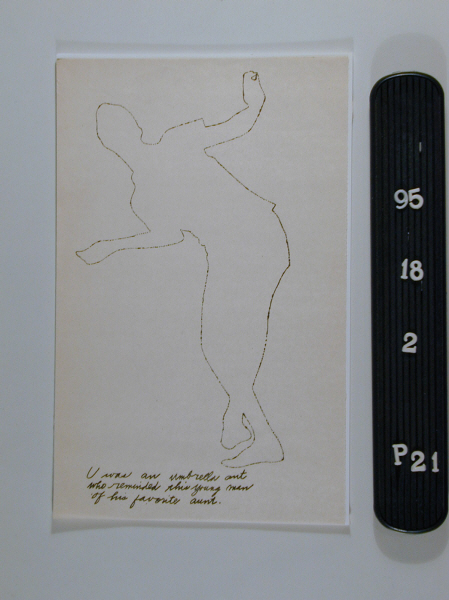 U was an umbrella ant
who reminded this young man
of his favorite aunt.
95
18
2
P21